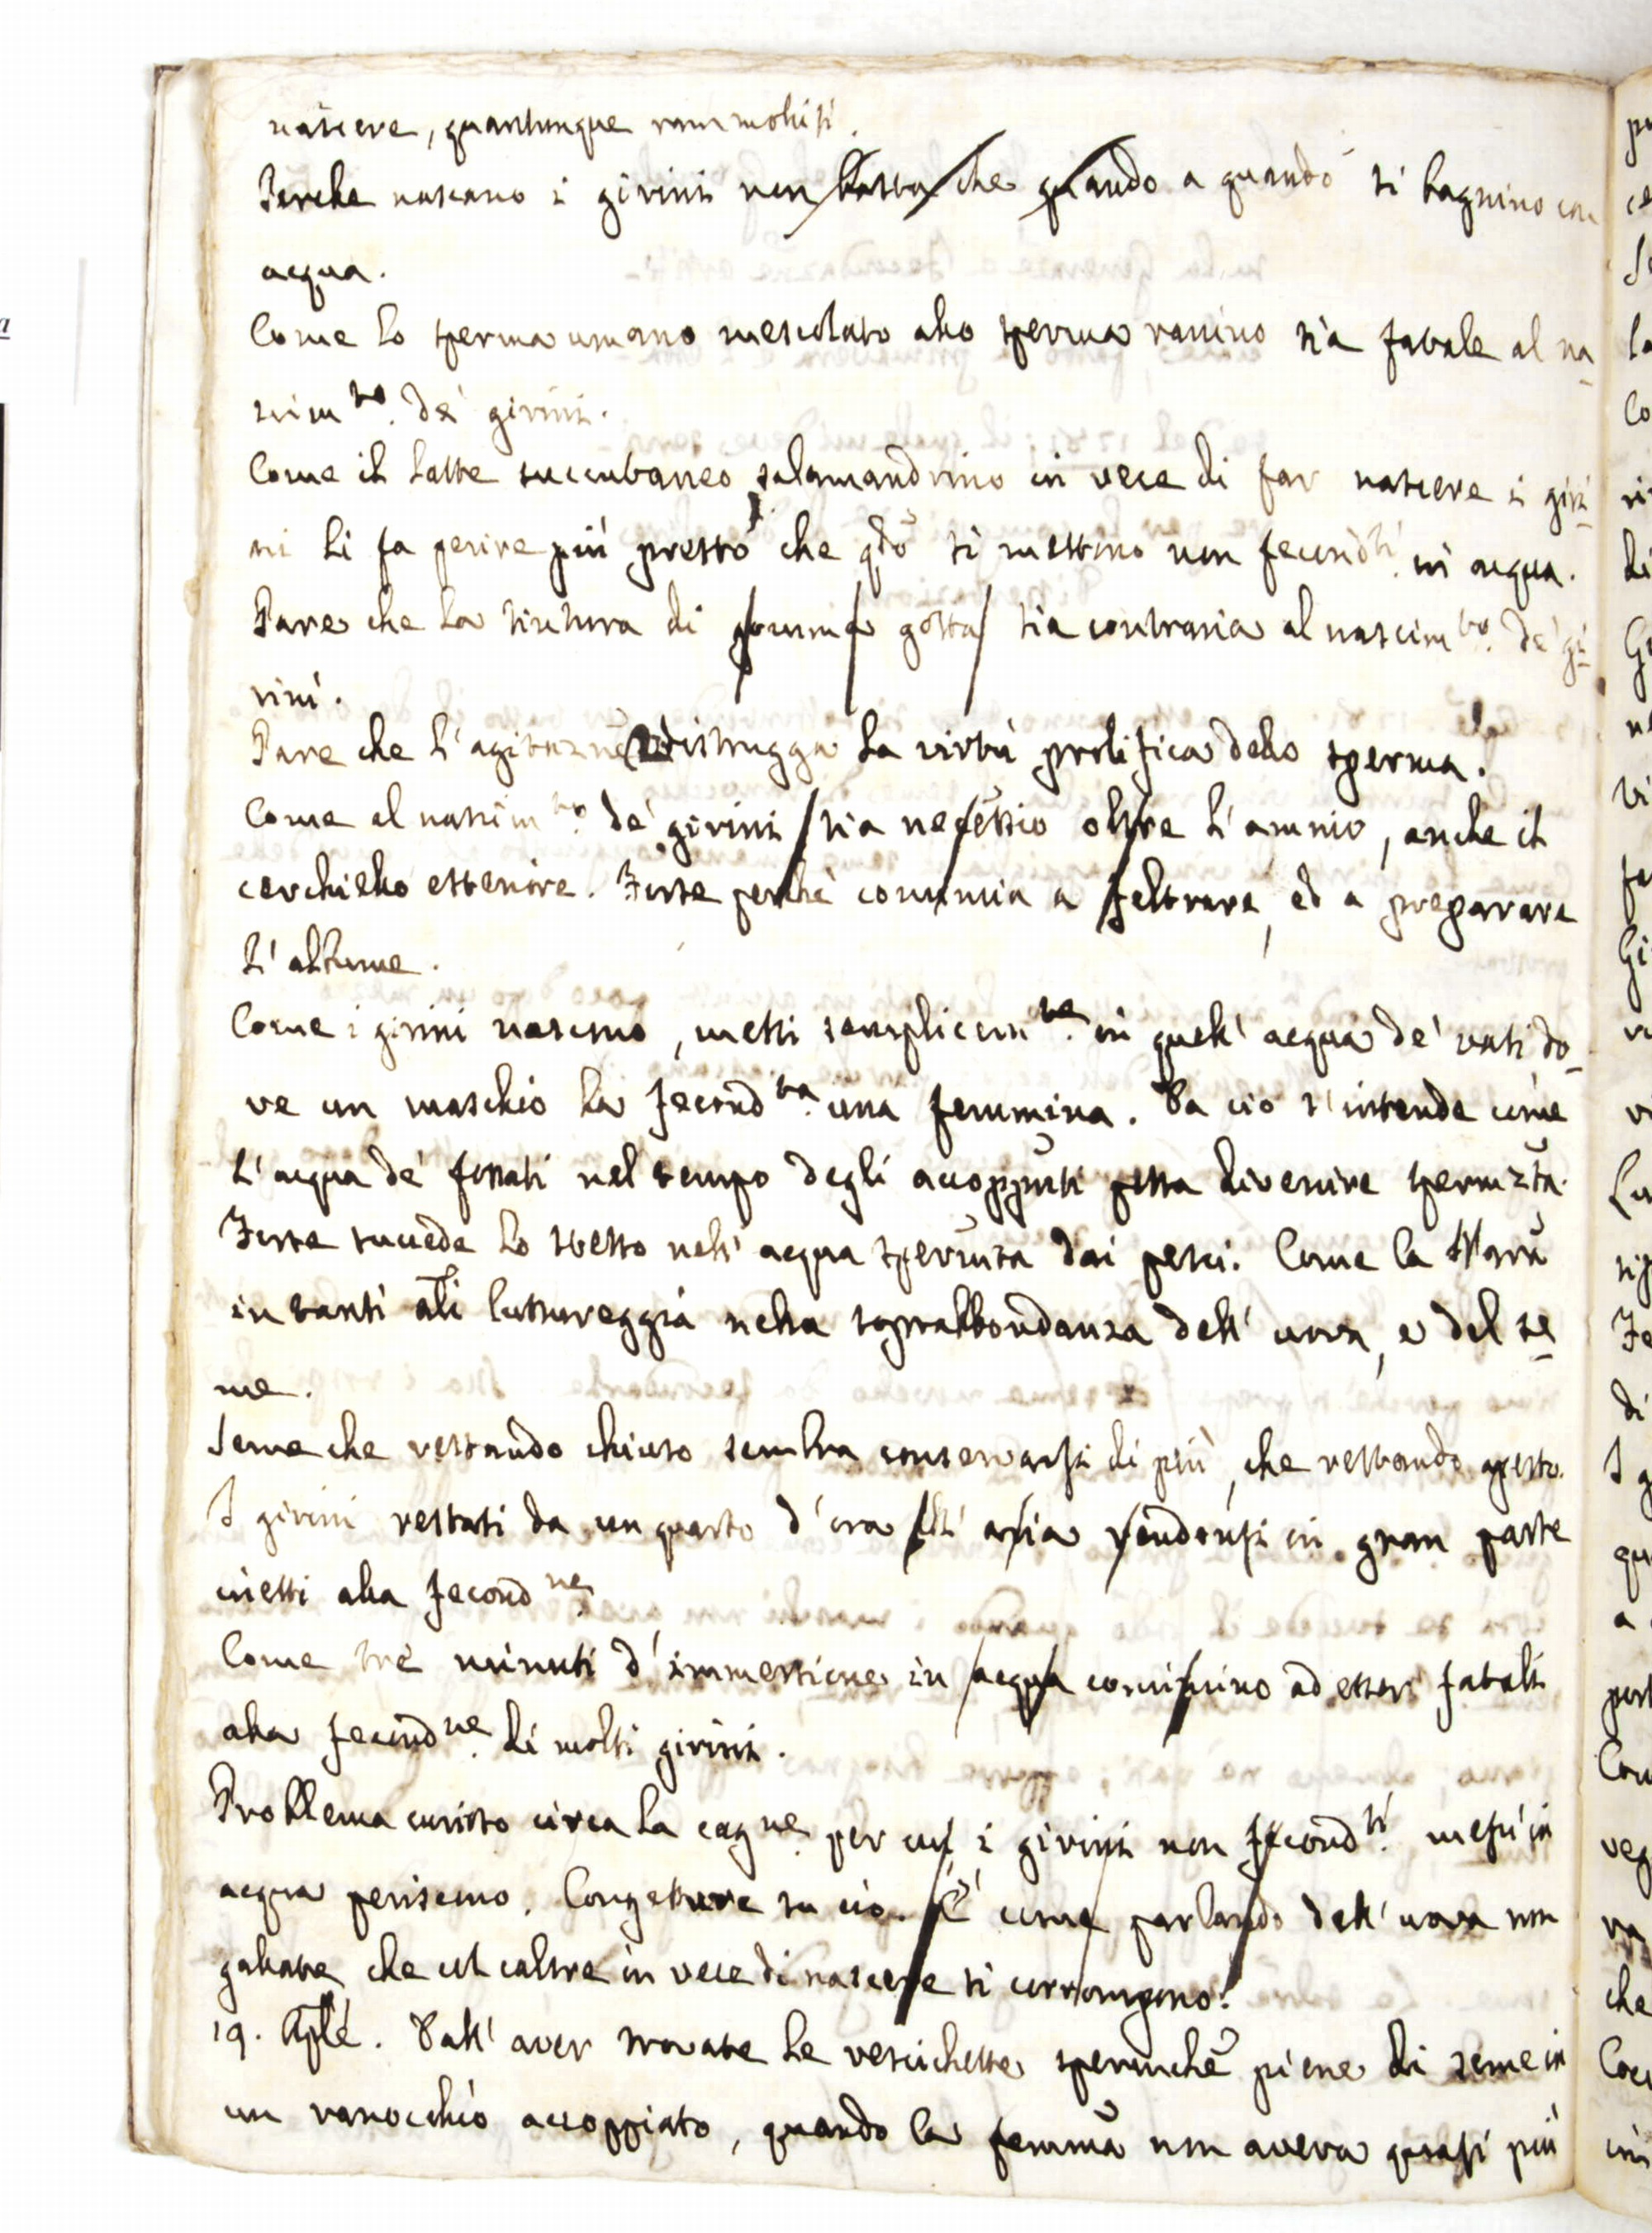 nascere, quantunque rammolisi.
Perche nascano i girini non basta che quando a quando si bagnino con
acqua.
Come lo sperma umano mescolato allo sperma ranino sia fatale al na
scim.to de' girini.
Come il latte succubaneo salamandrino in vece di far nascere i giri
ni li fa perire più presto che qdo si mettono non fecond.ti in acqua.
Pare che la tintura di gomma gotta sia contraria al nascim.to de' gi
rini.
Pare che l'agitazne distrugga la virtù prolifica dello sperma.
Come al nascim.to de' girini sia necessio oltre l'amnio, anche il
cerchiello esteriore. Forse perchè comincia a feltrare, ed a preparare
l'albume.
Come i girini nascono, messi semplicem.te in quell' acqua de' vasi do
ve un maschio ha fecond.ta una femmina. Da ciò s'intende come
l'acqua de' fossati nel tempo degli accoppnti possa divenire spermzta.
Forse succede lo stesso nell' acqua spermza dai pesci. Come la Nara
in tanti ali lussureggia nella soprabbondanza dell' uova, e del se
me.
Seme che restando chiuso sembra conservarsi di più, che restando aperto.
I girini restati da un quarto d'ora all' aria rendonsi in gran parte
inetti alla fecond.ne
Come tre minuti d'immersione in acqua cominciano ad esser fatali
alla fecond.ne di molti girini.
Problema curioso circa la cagne per cui i girini non fecond.ti messi in
acqua periscono. Congetture su ciò. È come parlando dell' uova non
gallate, che col calore in vece di nascere si corrompono.
19. Aple. Dall' aver trovate le vescichette spermche piene di seme in
un ranocchio accoppiato, quando la femmna non aveva quasi più